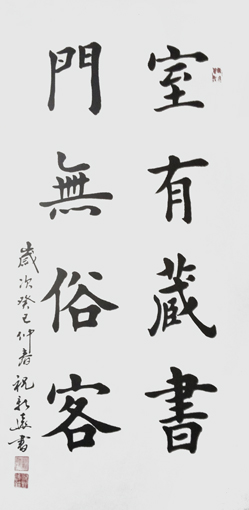 室有藏書
門無俗客
歲次癸巳仲春祝新遠書